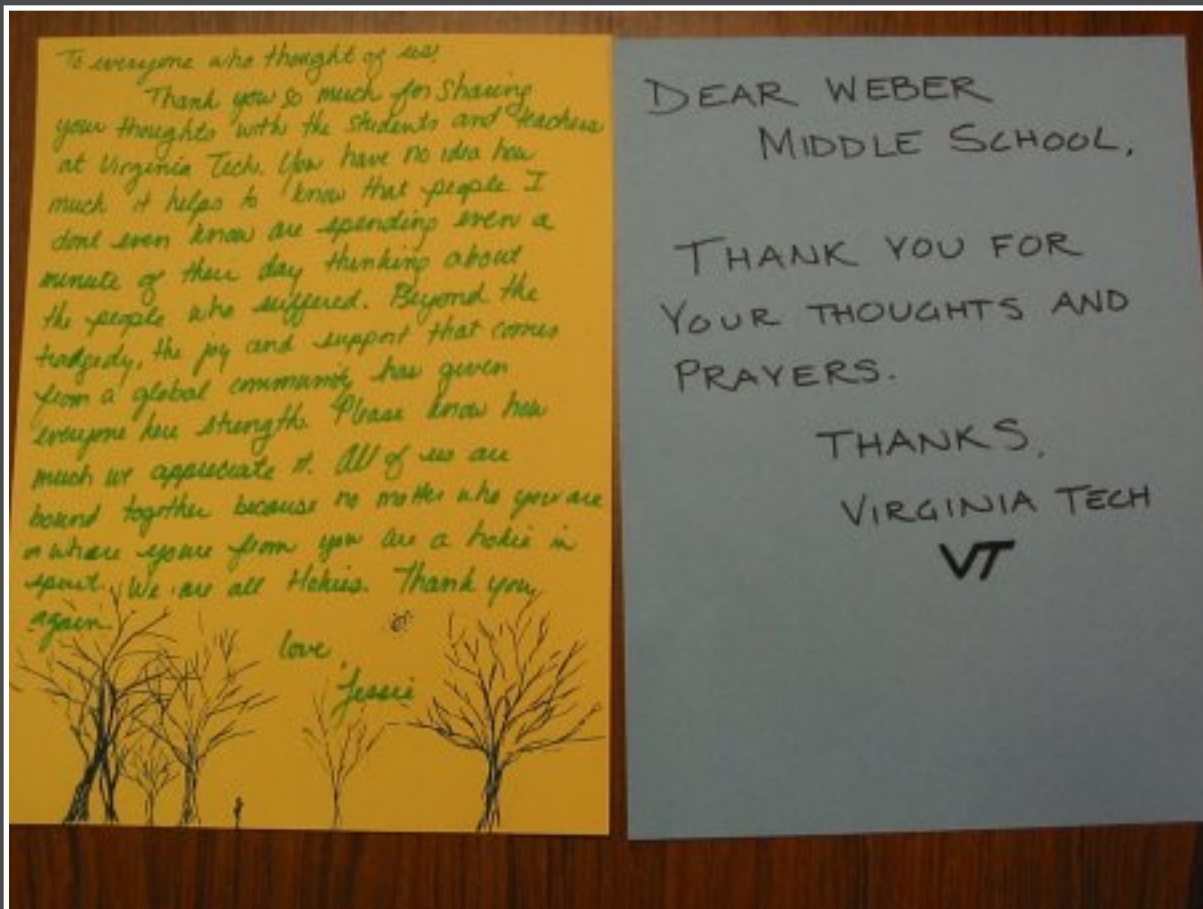 To everyone who thought of us!
Thank you so much for sharing
your thoughts with the students and teachers
at Virginia Tech. You have no idea how
much it helps to know that people I
dont even know are spending even a
minute of their day thinking about
the people who suffered. Beyond the
tradgedy, the joy and support that comes
from a global community has given
everyone here strength. Please know how
much we appreciate it. All of us are
bound together because no matter who you are
or where youre from you are a hokie in
spirit. We are all Hokies. Thank you
again.
love,
Jessie
DEAR WEBER
MIDDLE SCHOOL,
THANK YOU FOR
YOUR THOUGHTS AND
PRAYERS.
THANKS,
VIRGINIA TECH
VT